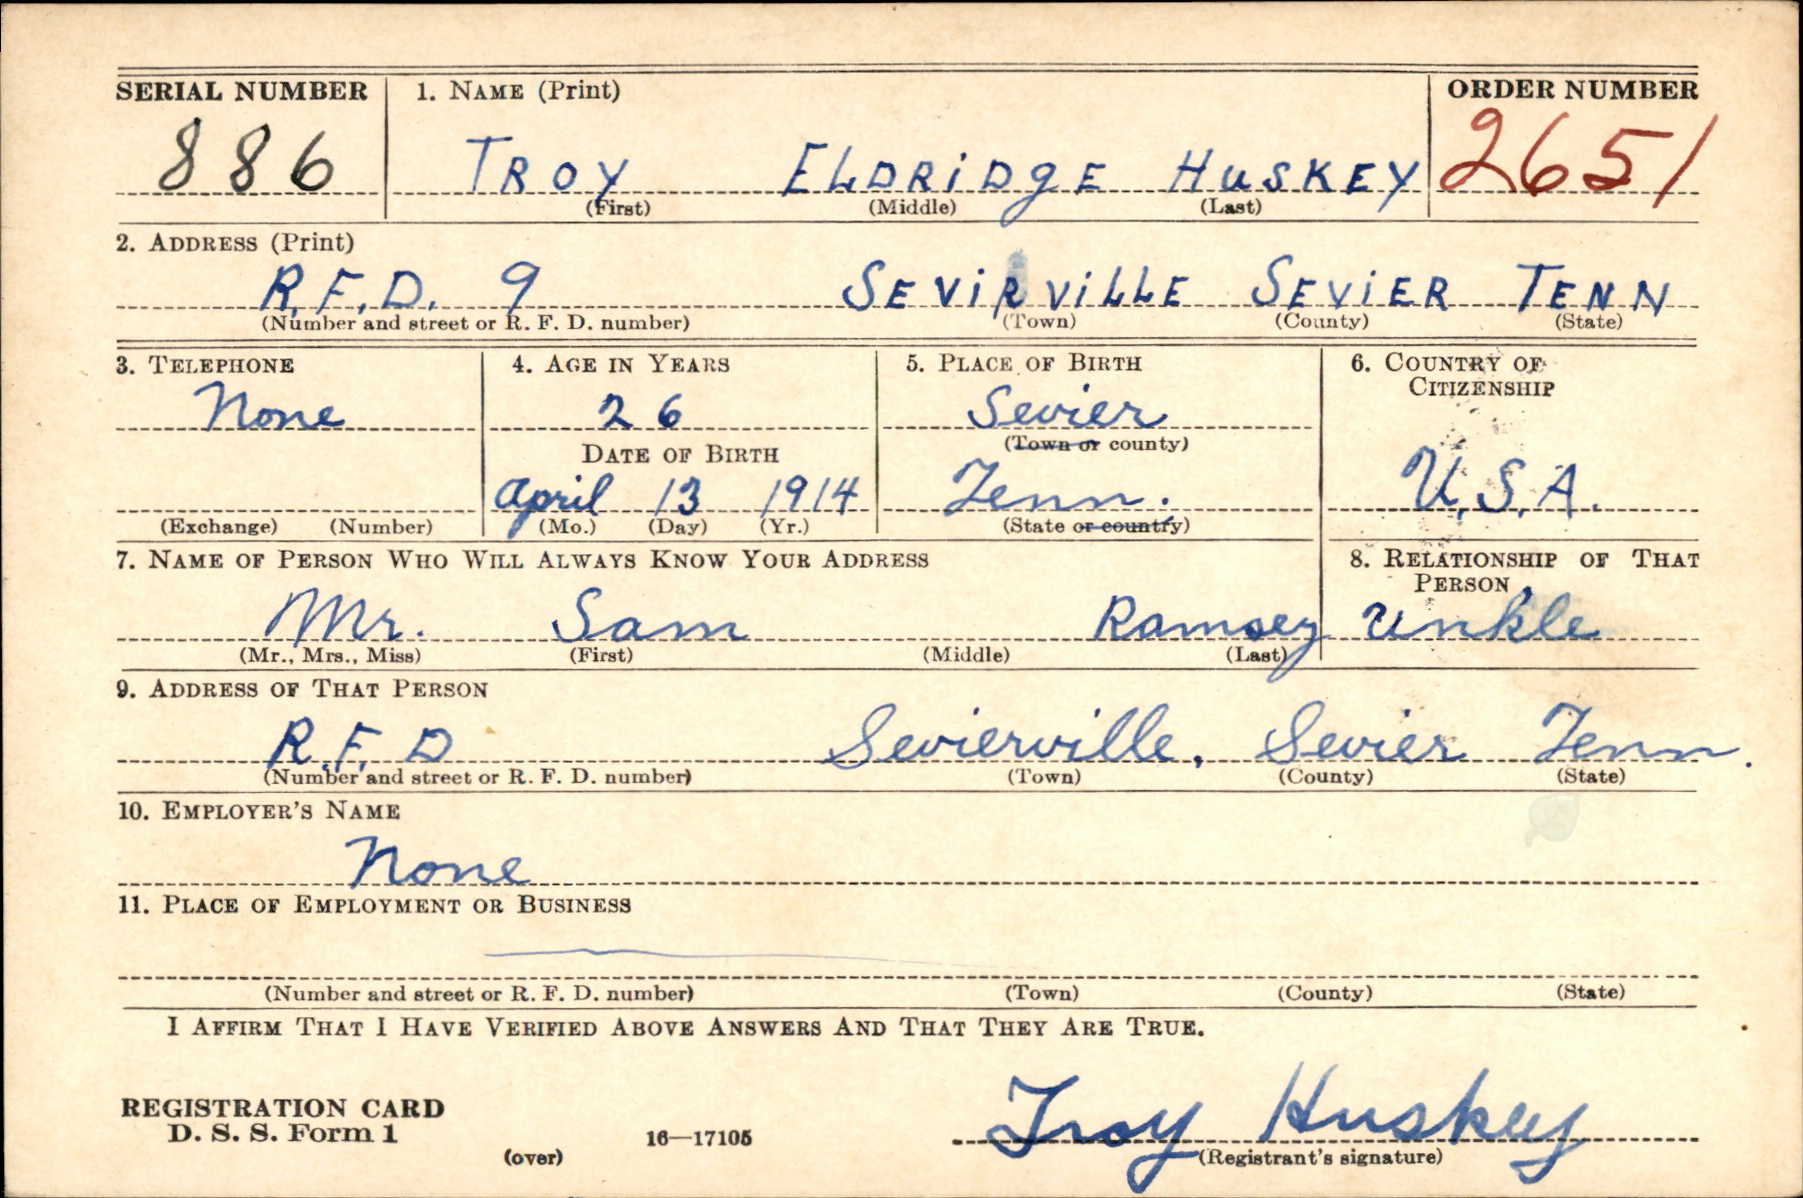 SERIAL NUMBER 1. NAME (Print) ORDER NUMBER
886 TROY ELDRIDGE HUSKEY 2651
(First) (Middle) (Last)
2. ADDRESS (Print)
R.F.D. 9 SEVIRVILLE SEVIER TENN
(Number and street or R. F. D. number) (Town) (County) (State)
3. TELEPHONE 4. AGE IN YEARS 5. PLACE OF BIRTH 6. COUNTRY OF
CITIZENSHIP
None 26 Sevier
(Town or county)
DATE OF BIRTH
April 13 1914 Tenn. U.S.A.
(Exchange) (Number) (Mo.) (Day) (Yr.) (State or country)
7. NAME OF PERSON WHO WILL ALWAYS KNOW YOUR ADDRESS 8. RELATIONSHIP OF THAT
PERSON
Mr. Sam Ramsey Unkle
(Mr., Mrs., Miss) (First) (Middle) (Last)
9. ADDRESS OF THAT PERSON
R.F.D Sevierville, Sevier Tenn.
(Number and street or R. F. D. number) (Town) (County) (State)
10. EMPLOYER'S NAME
None
11. PLACE OF EMPLOYMENT OR BUSINESS
(Number and street or R. F. D. number) (Town) (County) (State)
I AFFIRM THAT I HAVE VERIFIED ABOVE ANSWERS AND THAT THEY ARE TRUE.
REGISTRATION CARD
D. S. S. Form 1
(over) 16—17105
Troy Huskey
(Registrant's signature)